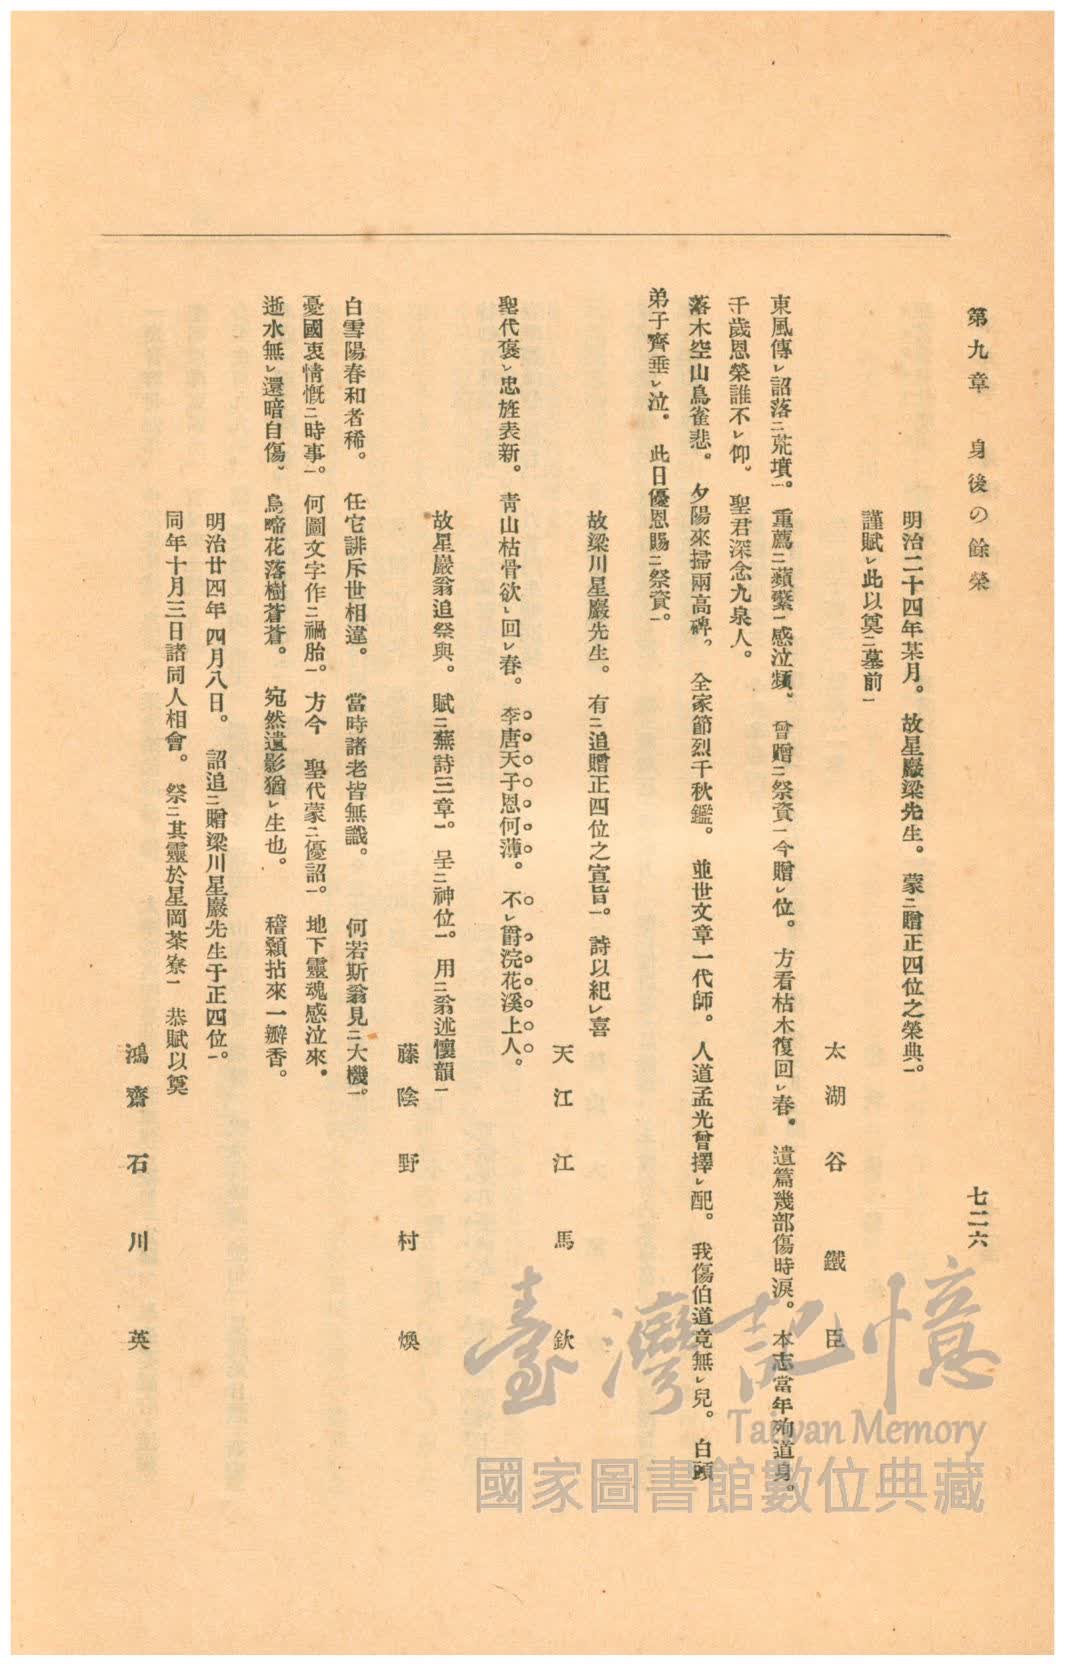 第九章 身後の餘榮
七二六
明治二十四年某月。故星巖梁先生。蒙㆓贈正四位之榮典㆒。
謹賦㆑此以奠㆓墓前㆒
太湖谷鐵臣
東風傳㆑詔落㆓荒墳㆒。重薦㆓蘋蘩㆒感泣頻。曾贈㆓祭資㆒今贈㆑位。方看枯木復回㆑春。遺篇幾部傷時淚。本志當年殉道身。
千歲恩榮誰不㆑仰。聖君深念九泉人。
落木空山鳥雀悲。夕陽來掃兩高碑。全家節烈千秋鑑。並世文章一代師。人道孟光曾擇㆑配。我傷伯道竟無㆑兒。白頭
弟子齊垂㆑泣。此日優恩賜㆓祭資㆒。
故梁川星巖先生。有㆓追贈正四位之宣旨㆒。詩以紀㆑喜
天江江馬欽
聖代褒㆑忠旌表新。青山枯骨欲㆑回㆑春。李唐天子恩何薄。不㆑爵浣花溪上人。
故星巖翁追祭典。賦㆓蕪詩三章㆒。呈㆓神位㆒。用㆓翁述懷韻㆒
藤陰野村煥
白雪陽春和者稀。任它誹斥世相違。當時諸老皆無識。何若斯翁見㆓大機㆒。
憂國衷情慨㆓時事㆒。何圖文字作㆓禍胎㆒。方今 聖代蒙㆓優詔㆒。地下靈魂感泣來。
逝水無㆑還暗自傷。鳥啼花落樹蒼蒼。宛然遺影猶㆑生也。稽顙拈來一瓣香。
明治廿四年四月八日。詔追㆓贈梁川星巖先生于正四位㆒。
同年十月三日諸同人相會。祭㆓其靈於星岡茶寮㆒ 恭賦以奠
鴻齋石川英
臺灣記憶
Taiwan Memory
國家圖書館數位典藏